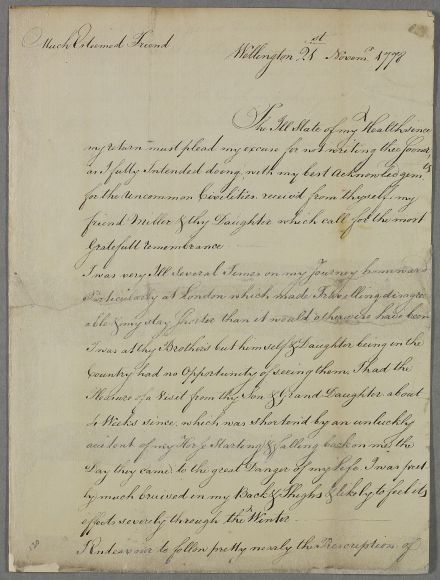 Much Esteemed Friend
Wellington 21st Novemr. 1778
The Ill State of my Health since
my return must plead my excuse for not writing thee sooner,
as I fully Intended doing, with my best Acknowledgemts
for the uncommon Civilities receiv'd from thyself, my
friend Miller & thy Daughter which call for the most
Gratefull remembrance
I was very Ill several Times on my Journey homewards
Particularly at London which made Travelling disagre
able & my stay shorter than it would otherwise have been
I was at thy Brothers but himself & Daughter being in the
Country had no Opportunity of seeing them. I had the
Pleasure of a Visit from thy Son & Grand Daughter about
4 Weeks since, which was shortend by an unluckly
accident of my Horse Starting & falling back on me the
Day they came, to the great Danger of my life. I was
by much bruised in my Back & Thighs & likely to feel its
effects severely through the Winter
I Endeavour to follow pretty nearly the Prescription of